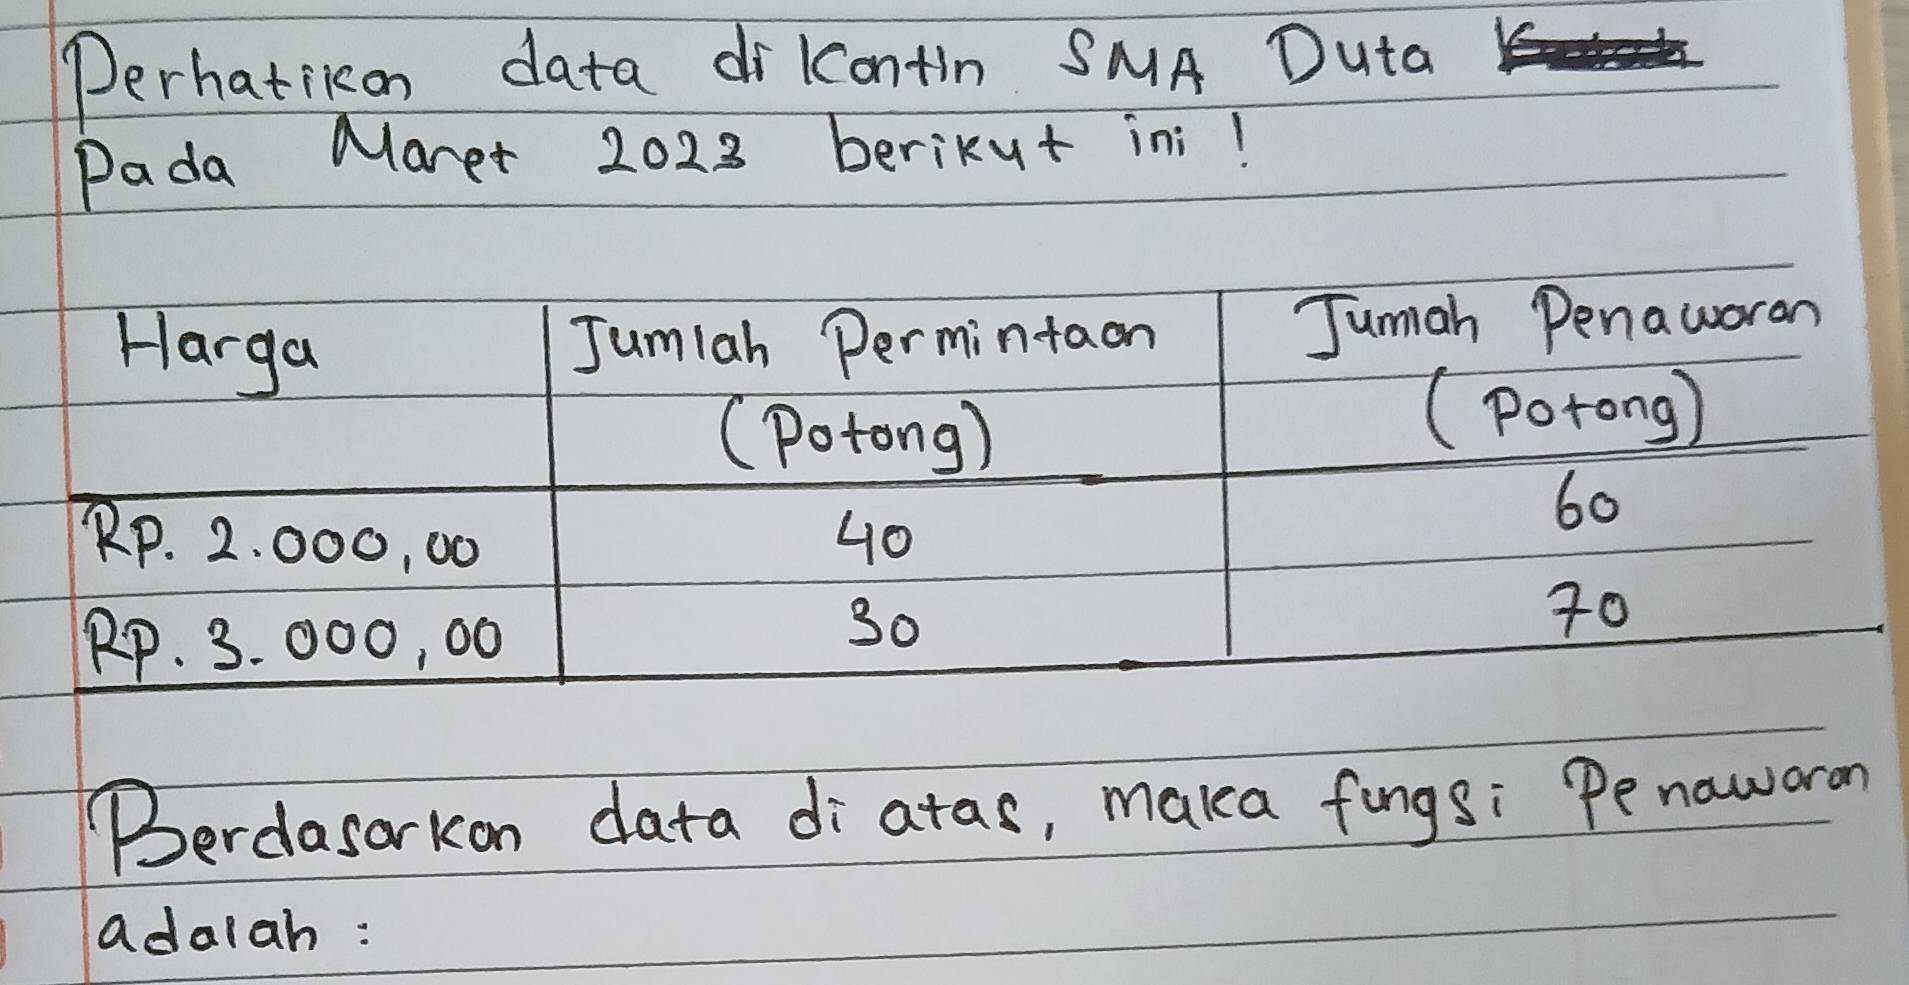 Perhatikan data di Kantin SMA Duta
Pada Maret 2023 berikut ini !
Harga Jumlah Permintaan Jumlah Penawaran
(Potong) (Potong)
RP. 2.000,00 40 60
RP. 3.000,00 30 70
Berdasarkan data di atas, maka fungsi Penawaran
adalah :